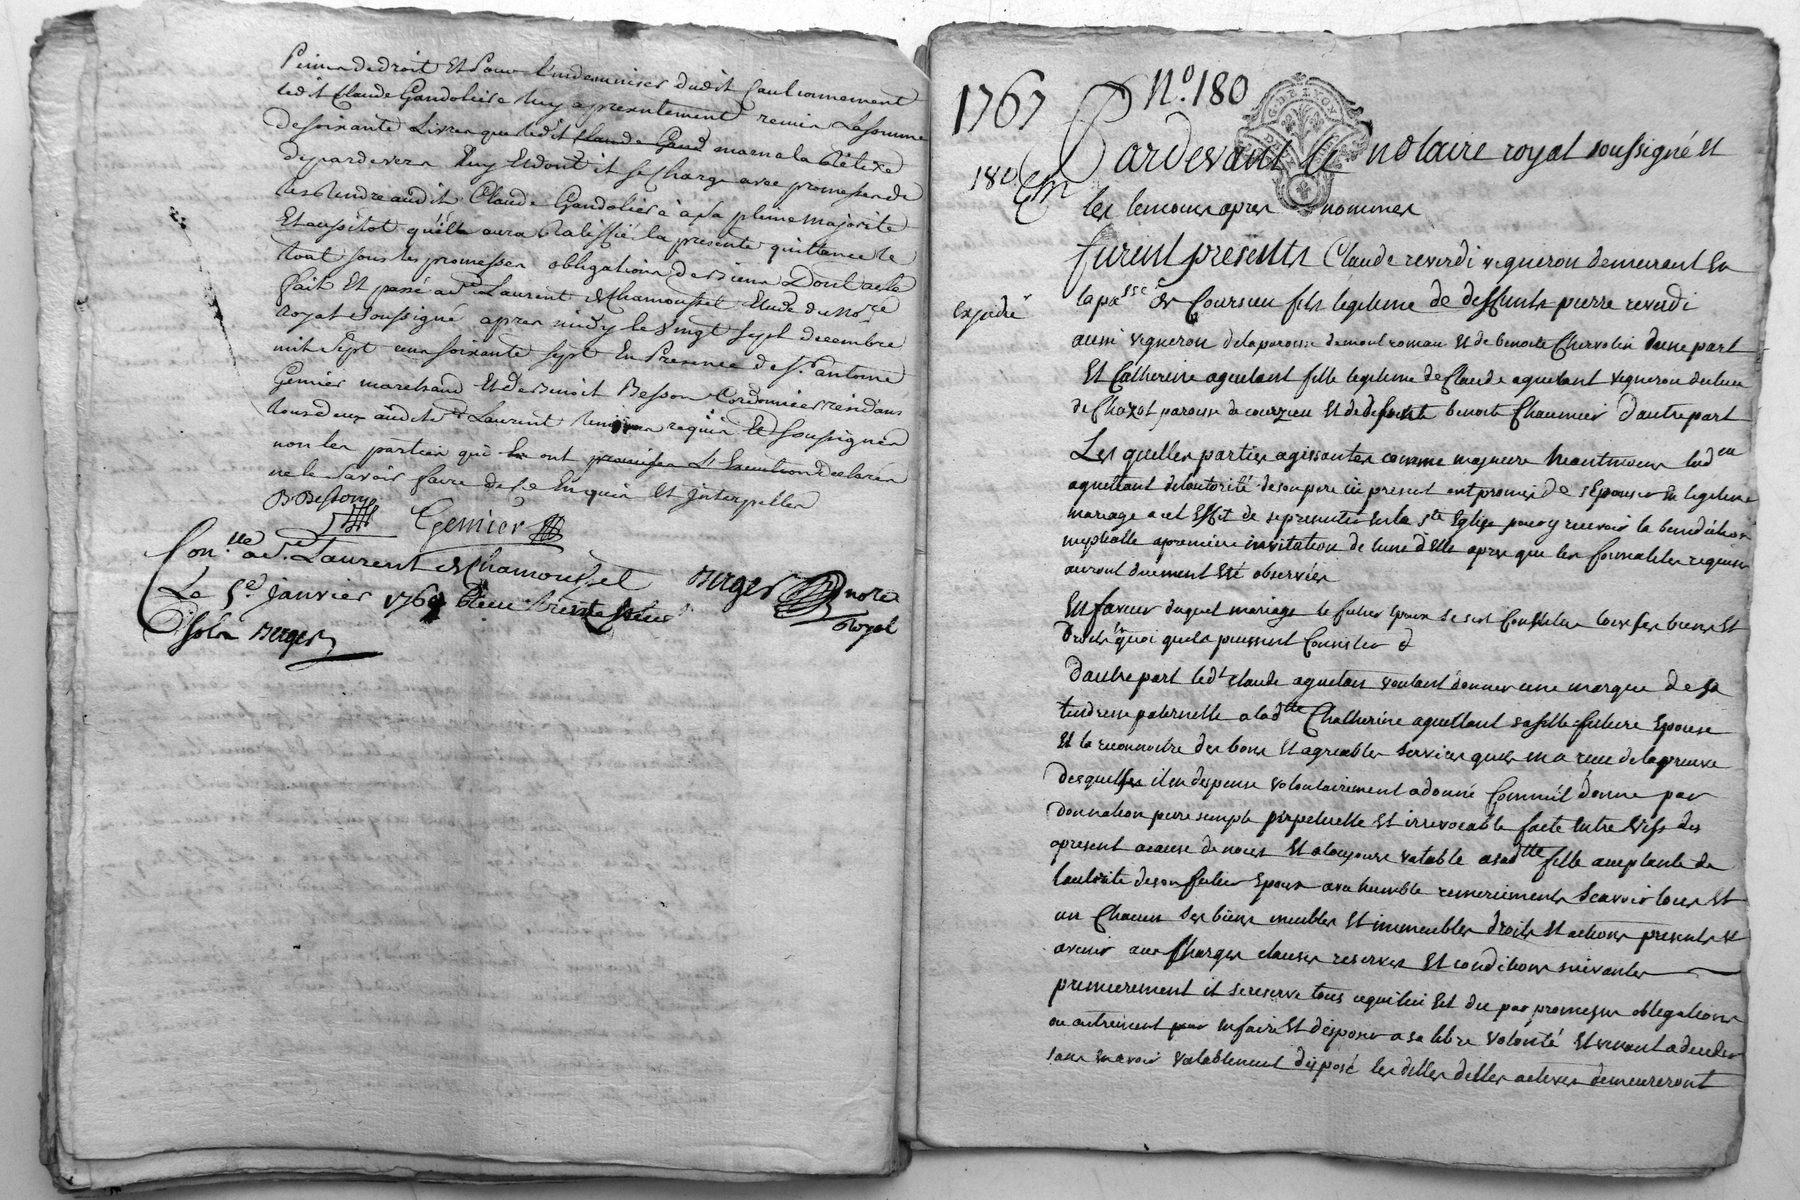 Peines de droit Et Pour l'indemniser dudit Cautionnement
ledit Claude Gandoliere luy a presentement remis La somme
de soixante Livres que ledit Claude Gand
de pardevers luy Et dont il se Charge avec promesse de
les Rendre audit Claude Gandoliere à sa pleine majorité
Et aussitot qu'elle aura Ratiffié la presente quittance le
tout sous les promesses obligations de biens Dont acte
fait Et passé a St Laurent de Chamousset Etude du no.re
royal soussigné apres midy le vingt sept decembre
mil sept cens soixante sept En Presence de Sr. antoine
Gemier marchand Et de Benoit Besson Cordonnier residans
tous deux audit St Laurent temoins requis Et soussignés
non les parties qui en ont promis L'Execution declaré
ne le savoir faire de ce Enquis Et Interpellés
B Besson
Gemier
Con.lle a St. Laurent de Chamousset
Berger nore
Royal
Le 5e janvier 176
Berger
1767
N.o 180
180
Pardevant le notaire royal soussigné Et
les temoins apres nommés
furent presents Claude reverdi vigneron demeurant En
expedié
la pa.sse de Coursieu fils legitime de deffunts pierre reverdi
aussi vigneron de la paroisse de mont roman Et de benoite Chervolin d'une part
Et Catherine aguetant fille legitime de Claude aguetant vigneron du lieu
de Chazot paroisse de courzieu Et de defunte benoite Chaumier d'autre part
Les quelles parties agissantes comme majeure Neantmoins lad
aguettant de l'autorité de son pere ici present ont promis de s'Epouser En legitime
mariage a cet Effet de se presenter En la Ste Eglise pour y recevoir la benediction
nuptialle a premiere invitation de l'une d'Elle apres que les formalités requises
auront duement Eté observées
En faveur duquel mariage le futur Epoux se Constitue tous ses biens Et
Droits En quoi qu'ils puissent Consister d
d'autre part led.t claude aguetan voulant donner une marque de sa
tendresse paternelle a lad.tte Chatherine aguettant sa fille future Epouse
Et la reconnoitre des bons Et agreables services qu'il En a recu de la preuve
desquelles il En dispense volontairement a donné Comme il donne par
donnation pure simple perpetuelle Et irrevocable faite Entre vifs des
apresent acause de noces Et a toujours valable a sad.tte fille acceptante de
l'autorité de son futur Epoux avec humble remerciements Scavoir tous Et
un Chacun ses biens meubles Et immeubles droits Et actions presents et
avenir aux Charges clauses reserves Et conditions suivantes
premierement il se reserve tous ce qui lui Est du par promesses obligations
ou autrement pour En faire Et disposer a sa libre volonté Et venant a deceder
sans En avoir valablement disposé les dittes dettes actives demeureront